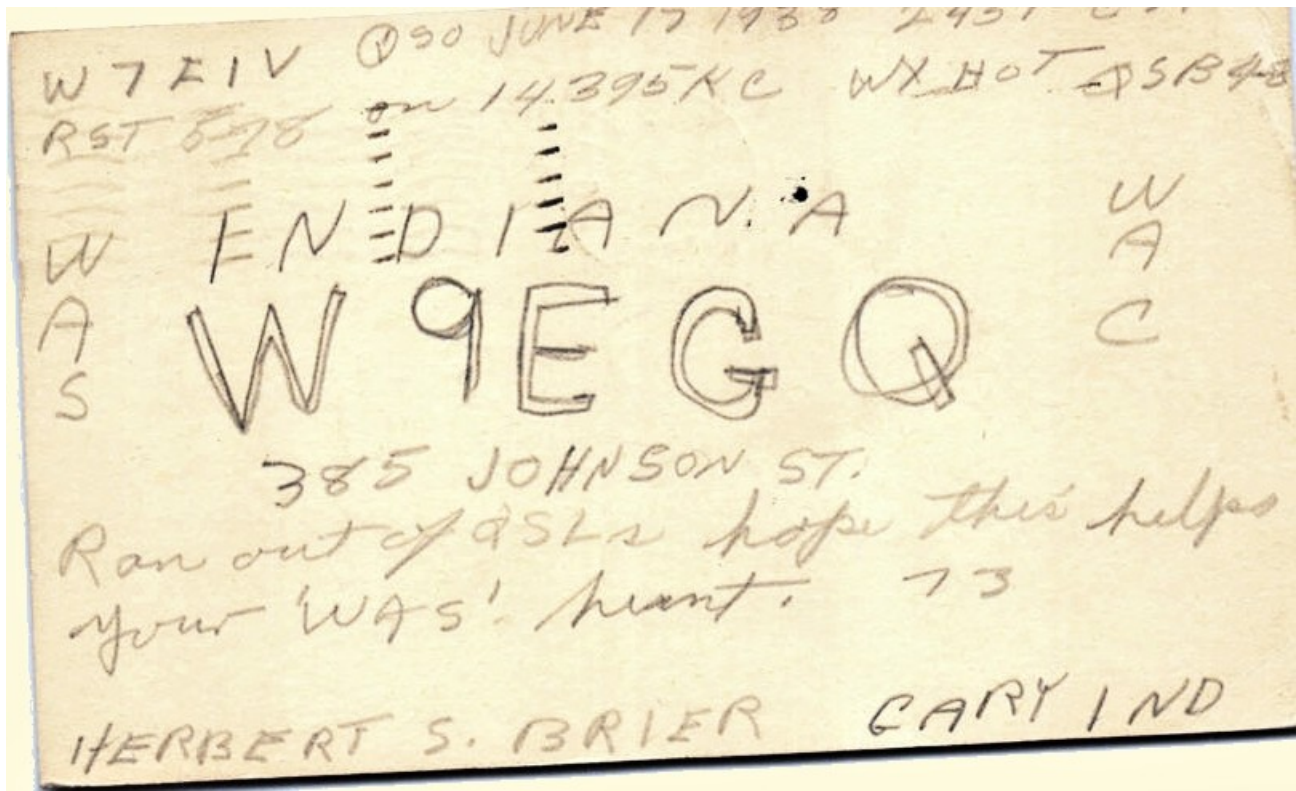 W7EIV QSO JUNE 17 1938
RST 578 on 14.395 KC WX HOT QSB 4-8
INDIANA
WAS
WAC
W9EGQ
385 JOHNSON ST.
Ran out of QSLs hope this helps
your 'WAS' hunt. 73
HERBERT S. BRIER GARY IND